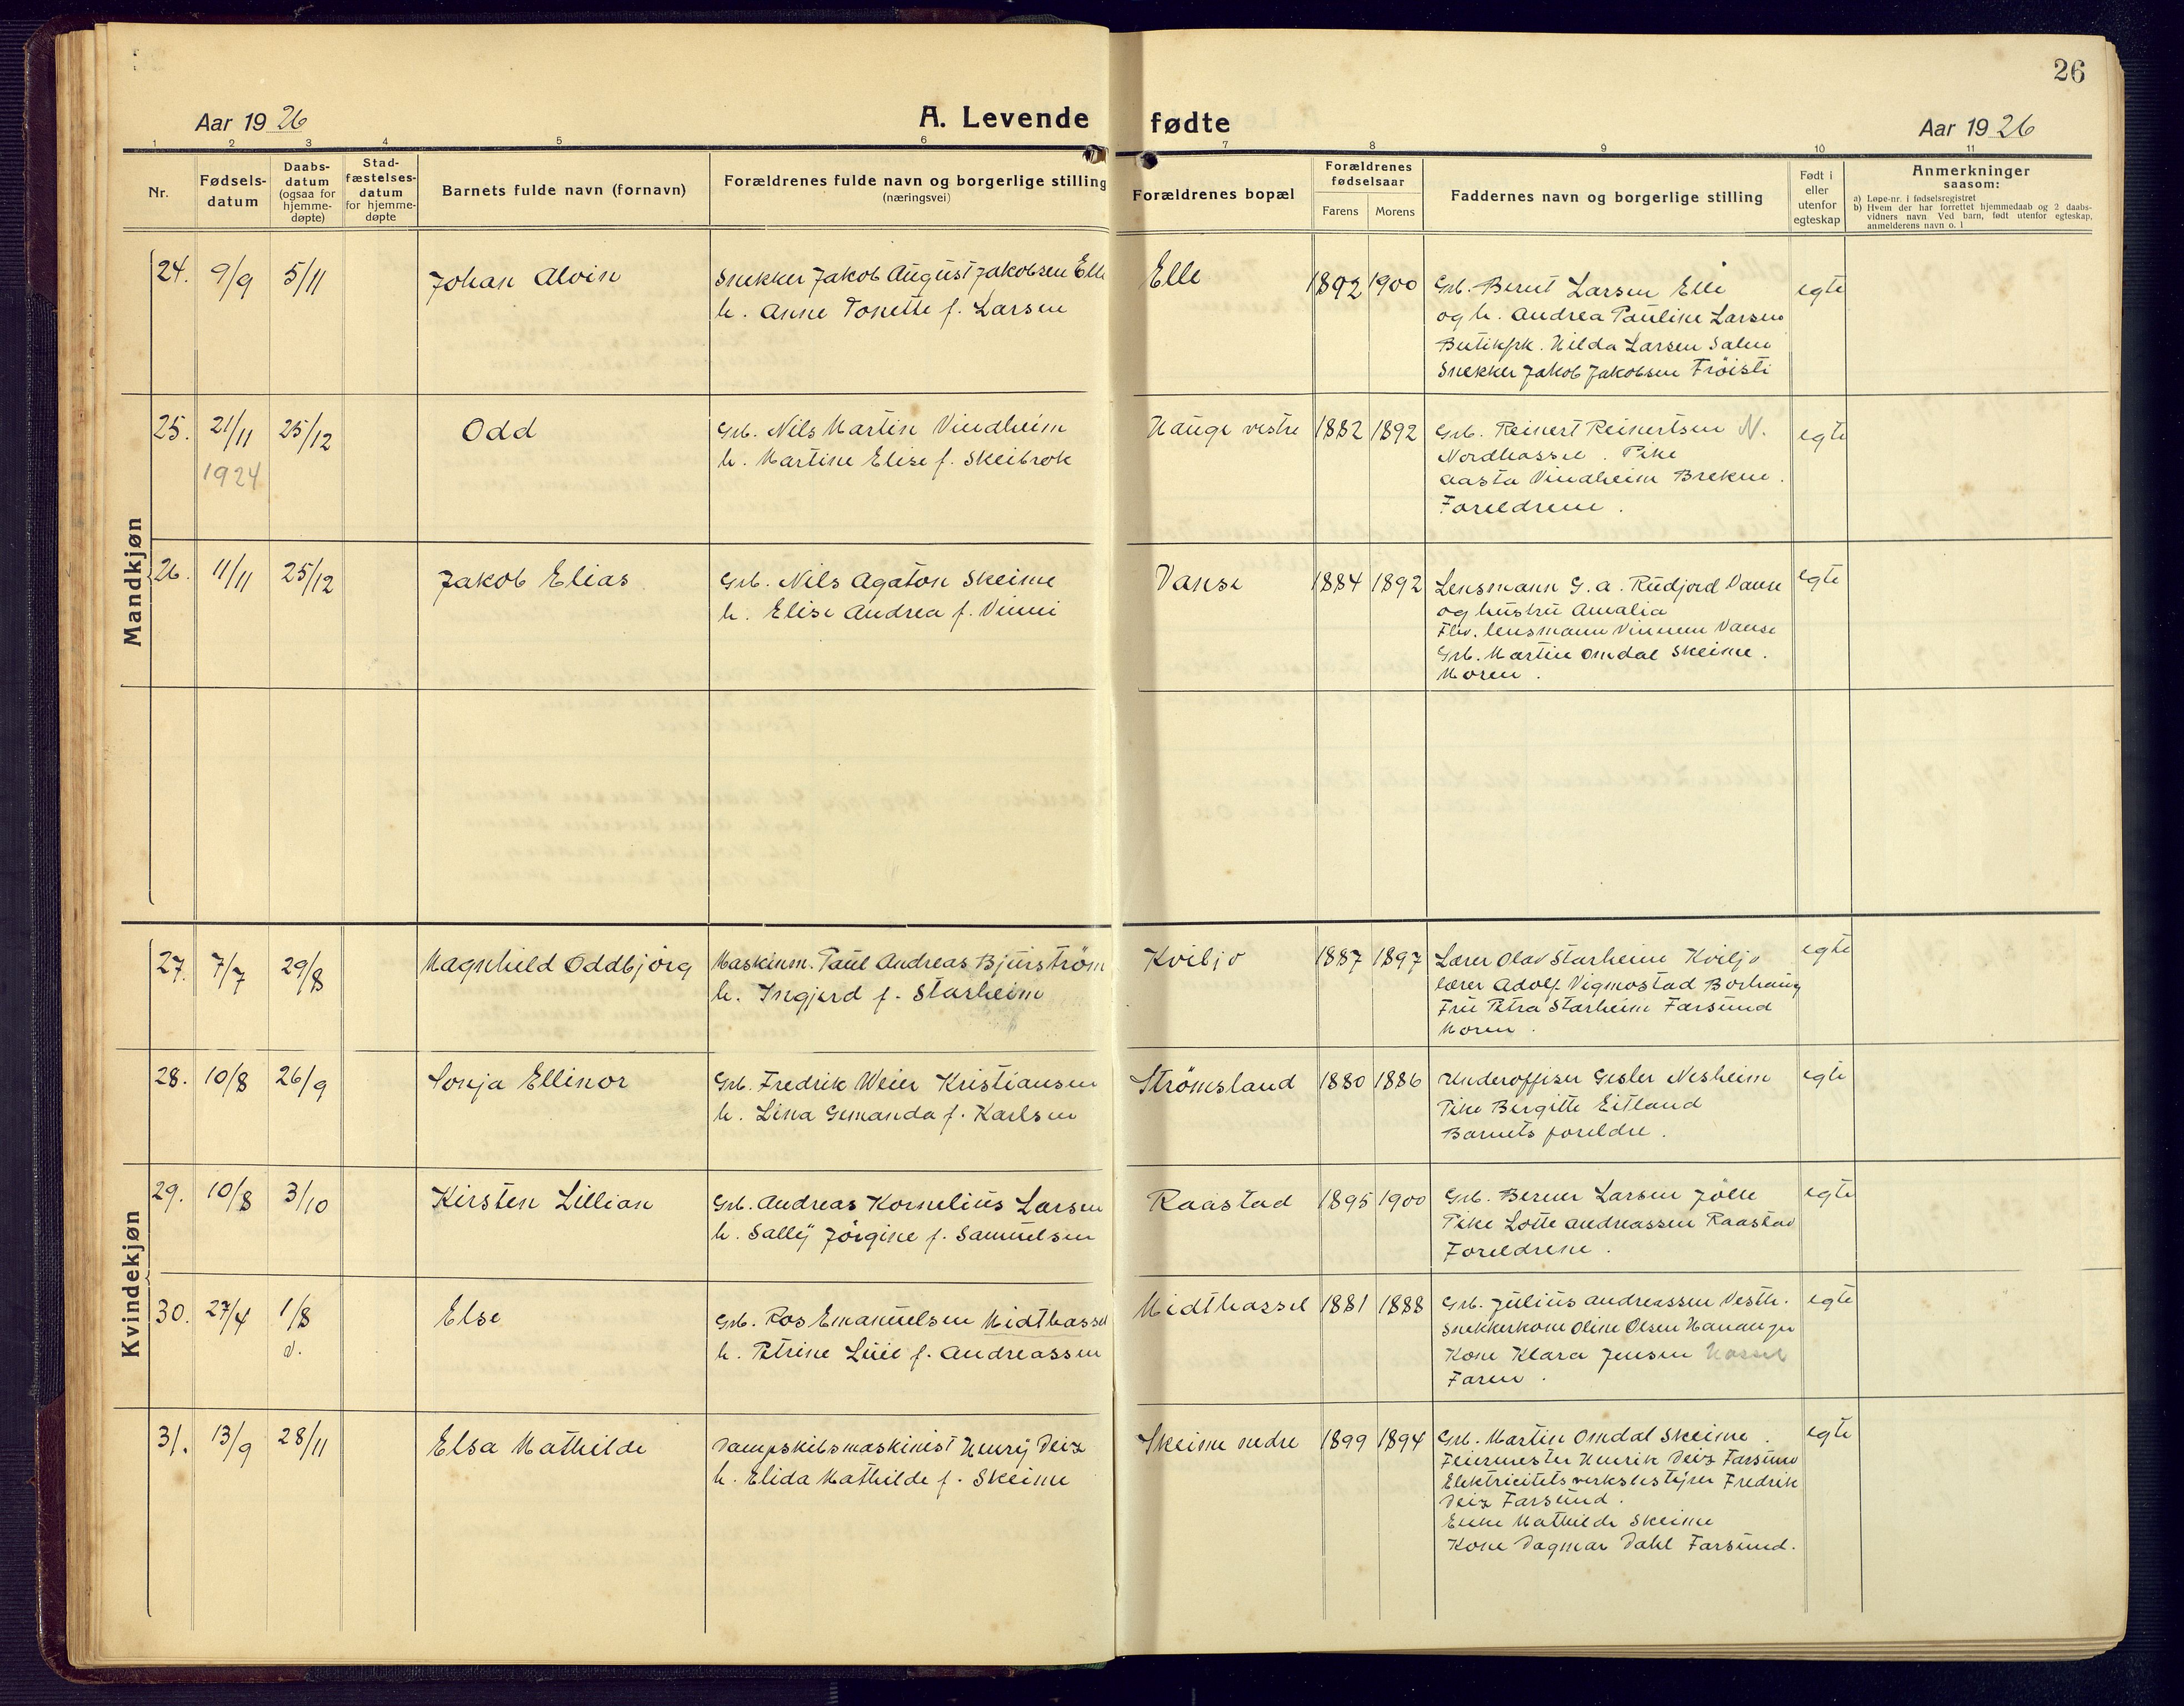 26
Aar 19 26
A. Levende fødte
Aar 19 26
1 2 3 4 5 6 7 8 9 10 11
Nr.
Fødsels-
datum
Daabs-
datum
(ogsaa for
hjemme-
døpte)
Stad-
fæstelses-
datum
for hjemme-
døpte
Barnets fulde navn (fornavn)
Forældrenes fulde navn og borgerlige stilling
(næringsvei)
Forældrenes bopæl
Forældrenes
fødselsaar
Farens Morens
Faddernes navn og borgerlige stilling
Født i
eller
utenfor
egteskap
Anmerkninger
saasom:
a) Løpe-nr. i fødselsregistret
b) Hvem der har forrettet hjemmedaab og 2 daabs-
vidners navn Ved barn, født utenfor egteskap,
anmelderens navn o. l
Mandkjøn
24. 9/9 5/11 Johan Alvin
Snekker Jakob August Jakobsen Elle
h. Anne Tonette f. Larsen
Elle 1892 1900
Grb. Bernt Larsen Elle
og h. Andrea Pauline Larsen
Butikfrk. Hilda Larsen Salen
Snekker Jakob Jakobsen Tröisti
egte
25. 21/11 25/12 Odd
1924
Grb. Nils Martin Vindheim
h. Martine Elise f. Skeibrok
Hauge vestre 1882 1892
Grb. Reinert Reinertsen N.
Nordhassel. Pike
Aasta Vindheim Brekne.
Foreldrene.
egte
26. 11/11 25/12 Jakob Elias
Grb. Nils Agaton Skeime
h. Elise Andrea f. Vinni
Vanse 1884 1892
Lensmann G. A. Rudjord Vanse
og hustru Amalia
Flv. lensmann Vinnem Vanse
Grb. Martin Omdal Skeime.
Moren.
egte
Kvindekjøn
27. 7/7 29/8 Magnhild Oddbjörg
Maskinm. Paul Andreas Bjurström
h. Ingjerd f. Starheim
Kviljo 1887 1897
Lærer Olav Starheim Kviljo
lærer Adolf Vigmostad Borhaug
Fru Petra Starheim Farsund
Moren.
egte
28. 10/8 26/9 Sonja Ellinor
Grb. Fredrik Weier Kristiansen
h. Lina Gemanda f. Karlsen
Strömsland 1880 1886
Underoffiser Gesler Nesheim
Pike Bergitte Eitland
Barnets foreldre.
egte
29. 10/8 3/10 Kirsten Lillian
Grb. Andreas Kornelius Larsen
h. Sally Jörgine f. Samuelsen
Raastad 1895 1900
Grb. Berner Larsen Jölle
Pike Lotte Andreassen Raastad
Foreldrene.
egte
30. 27/4 1/8 Else
d.
Grb. Ros Emanuelsen Midthassel
h. Petrine Luie f. Andreassen
Midthassel 1881 1888
Grb. Julius Andreassen Vesth.
Snekkerkone Oline Olsen Hananger
Kone Klara Jensen Hassel
Faren.
egte
31. 13/9 28/11 Elsa Mathilde
Dampskibsmaskinist Henry Deiz
h. Elida Mathilde f. Skeime
Skeime nedre 1899 1894
Grb. Martin Omdal Skeime.
Feiermester Henrik Deiz Farsund
Elektricitetsverksbestyrer Fredrik
Deiz Farsund.
Enke Mathilde Skeime
Kone Dagmar Dahl Farsund.
egte